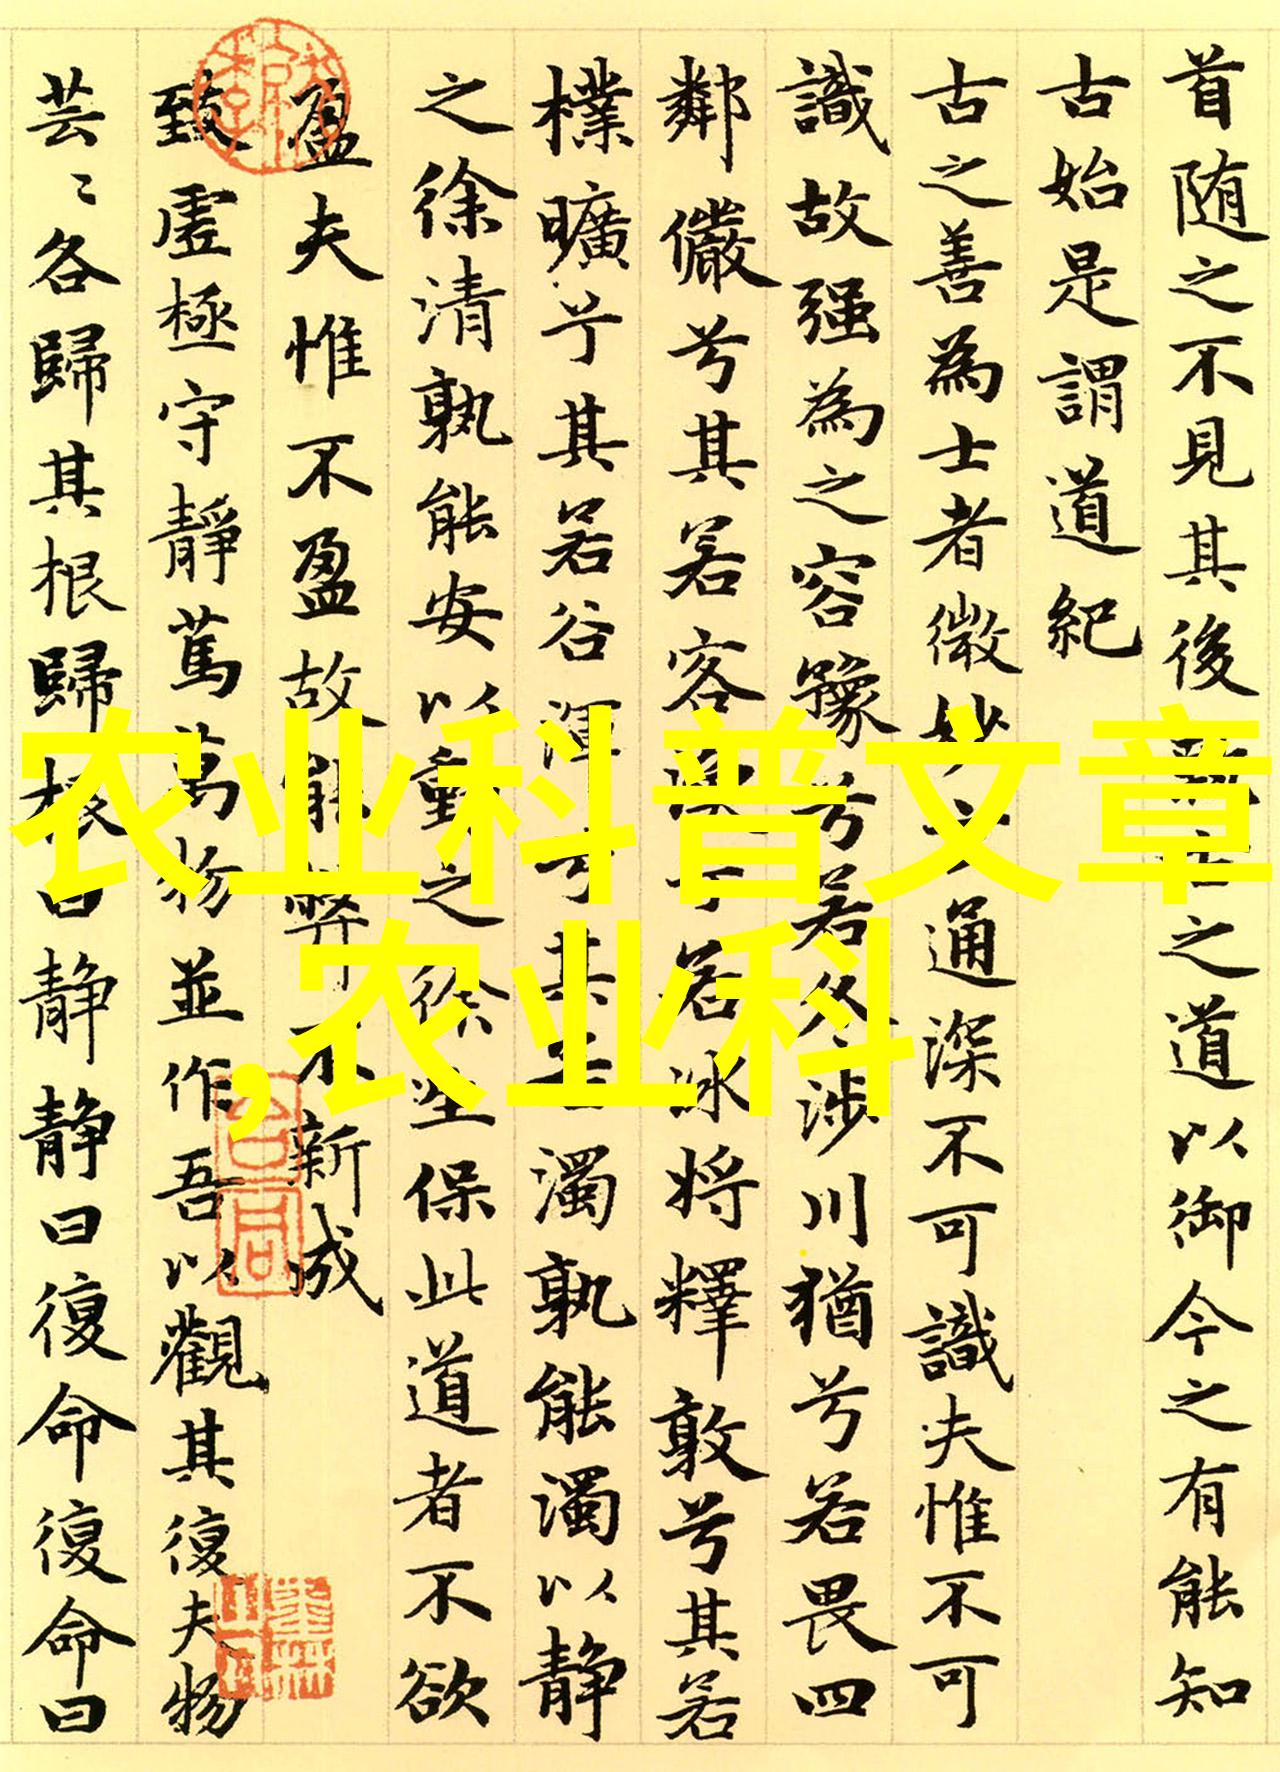 首随之不見其後執古之道以御今之有能知
古始是謂道紀
古之善為士者微妙玄通深不可識夫惟不可
識故强為之容豫兮若冬涉川猶兮若畏四
鄰儼兮其若客渙兮若冰将釋敦兮其若
樸曠兮其若谷渾兮其若濁孰能濁以静
之徐清孰能安以動之徐生保此道者不欲
盈夫惟不盈故能弊不新成
致虚極守静篤萬物並作吾以觀其復夫物
芸〻各歸其根歸根曰静静曰復命復命曰
农业科普文章
,农业科